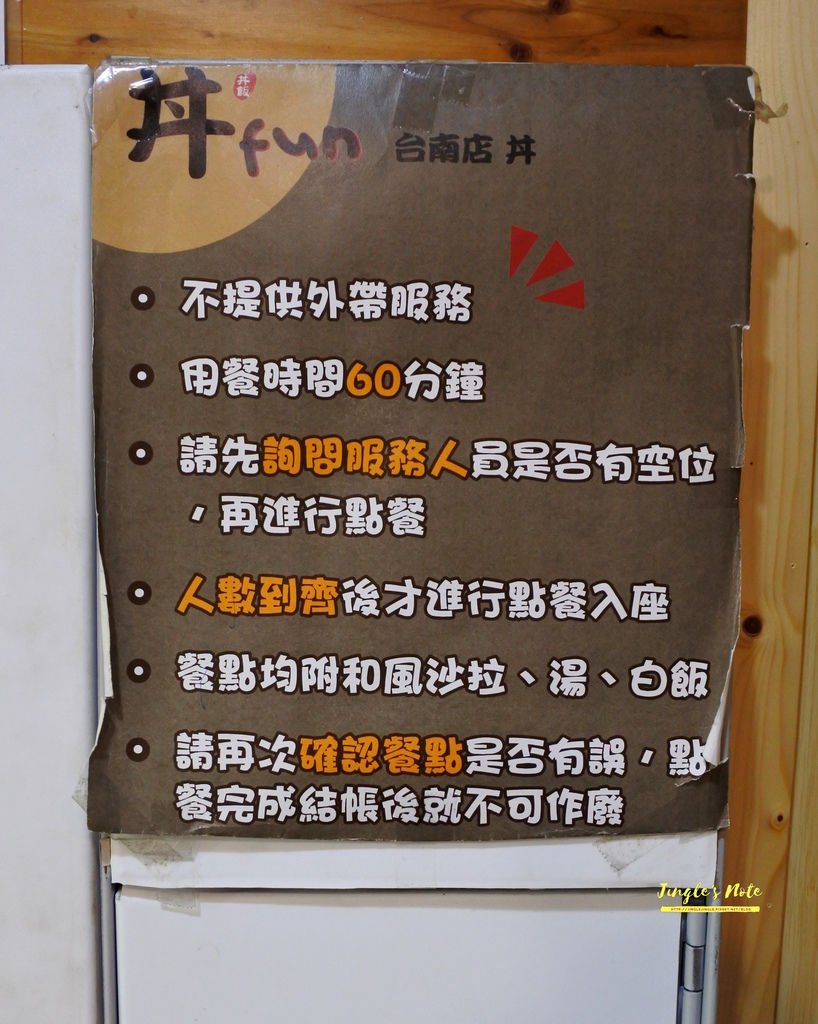 丼飯
丼fun 台南店 丼
不提供外帶服務
用餐時間60分鐘
請先詢問服務人員是否有空位
，再進行點餐
人數到齊後才進行點餐入座
餐點均附和風沙拉、湯、白飯
請再次確認餐點是否有誤，點
餐完成結帳後就不可作廢
Jingle's Note